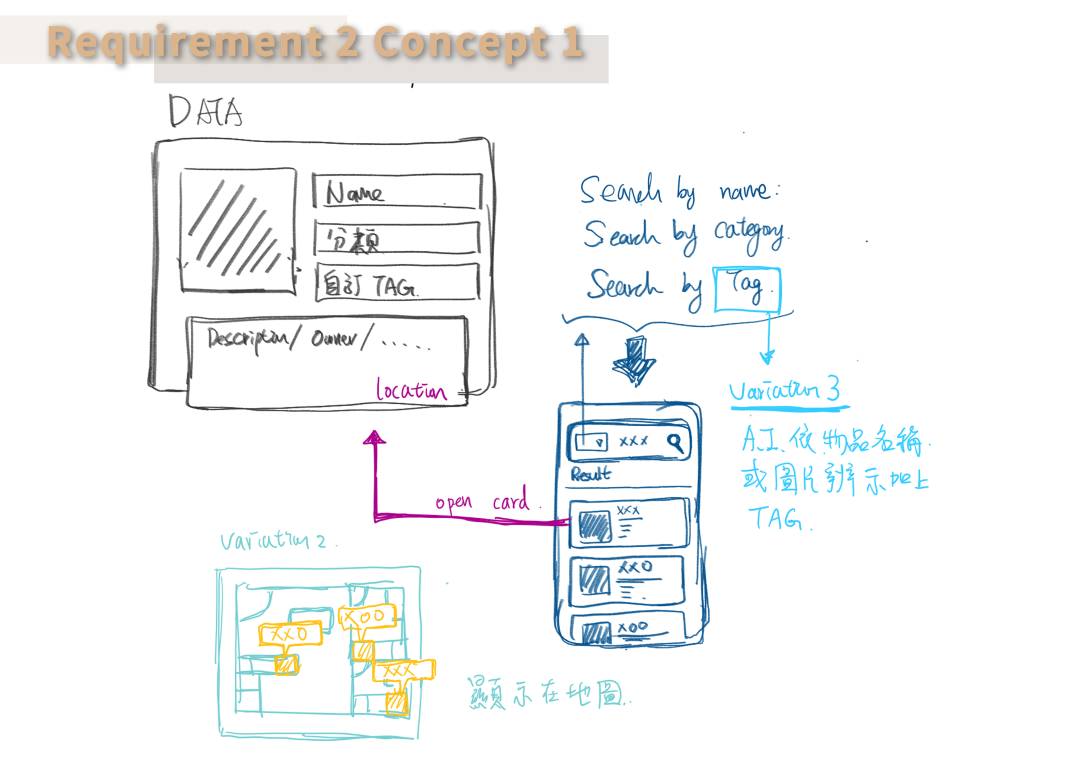 Requirement 2 Concept 1
DATA
Name
分類
自訂 TAG
Description/ Owner/ .....
location
Search by name:
Search by category.
Search by Tag.
Variation 3
A.I. 依物品名稱.
或圖片辨示加上
TAG.
xxx
Result
xxx
xxo
xoo
open card.
Variation 2.
xxo
xoo
xxx
顯示在地圖.